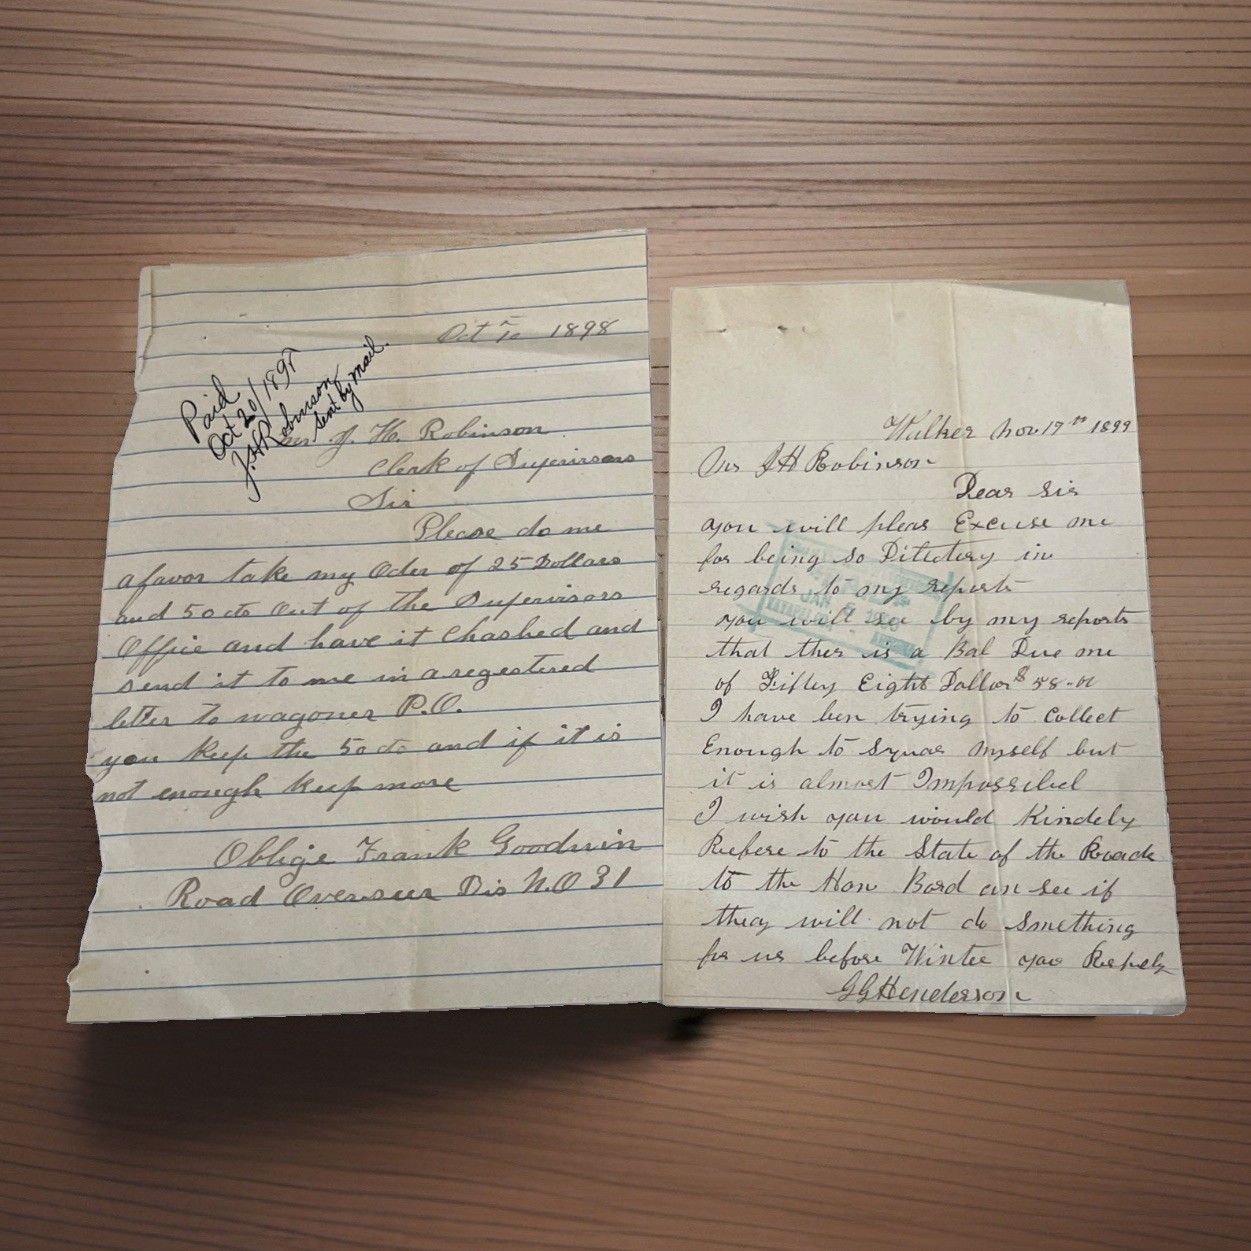 Oct 10 1898
Paid
Oct 20/1898
J.H. Robinson
Sent by mail.
Mr J. H. Robinson
Clerk of Supervisors
Sir
Please do me
afavor take my Oder of 25 Dollars
and 50 cts Out of the Supervisors
Office and have it Chashed and
send it to me in a regestered
letter to wagoner P.O.
you Keep the 50 cts and if it is
not enough Keep more
Oblige Frank Goodwin
Road Overseer Dis N.O 31
Walker Nov 17th 1899
Mr J H Robinson
Dear Sir
you will pleas Excuse me
for being so Dilectory in
regards to my reports
you will see by my reports
that ther is a Bal Due me
of Fiftey Eight Dollar $ 58-00
I have ben trying to Collect
Enough to Squar Myself but
it is almost Impossibel
I wish you would Kindely
Refere to the State of the Roads
to the Hon Bord an see if
they will not do Smething
for us before Winter
G G Henderson
JAN